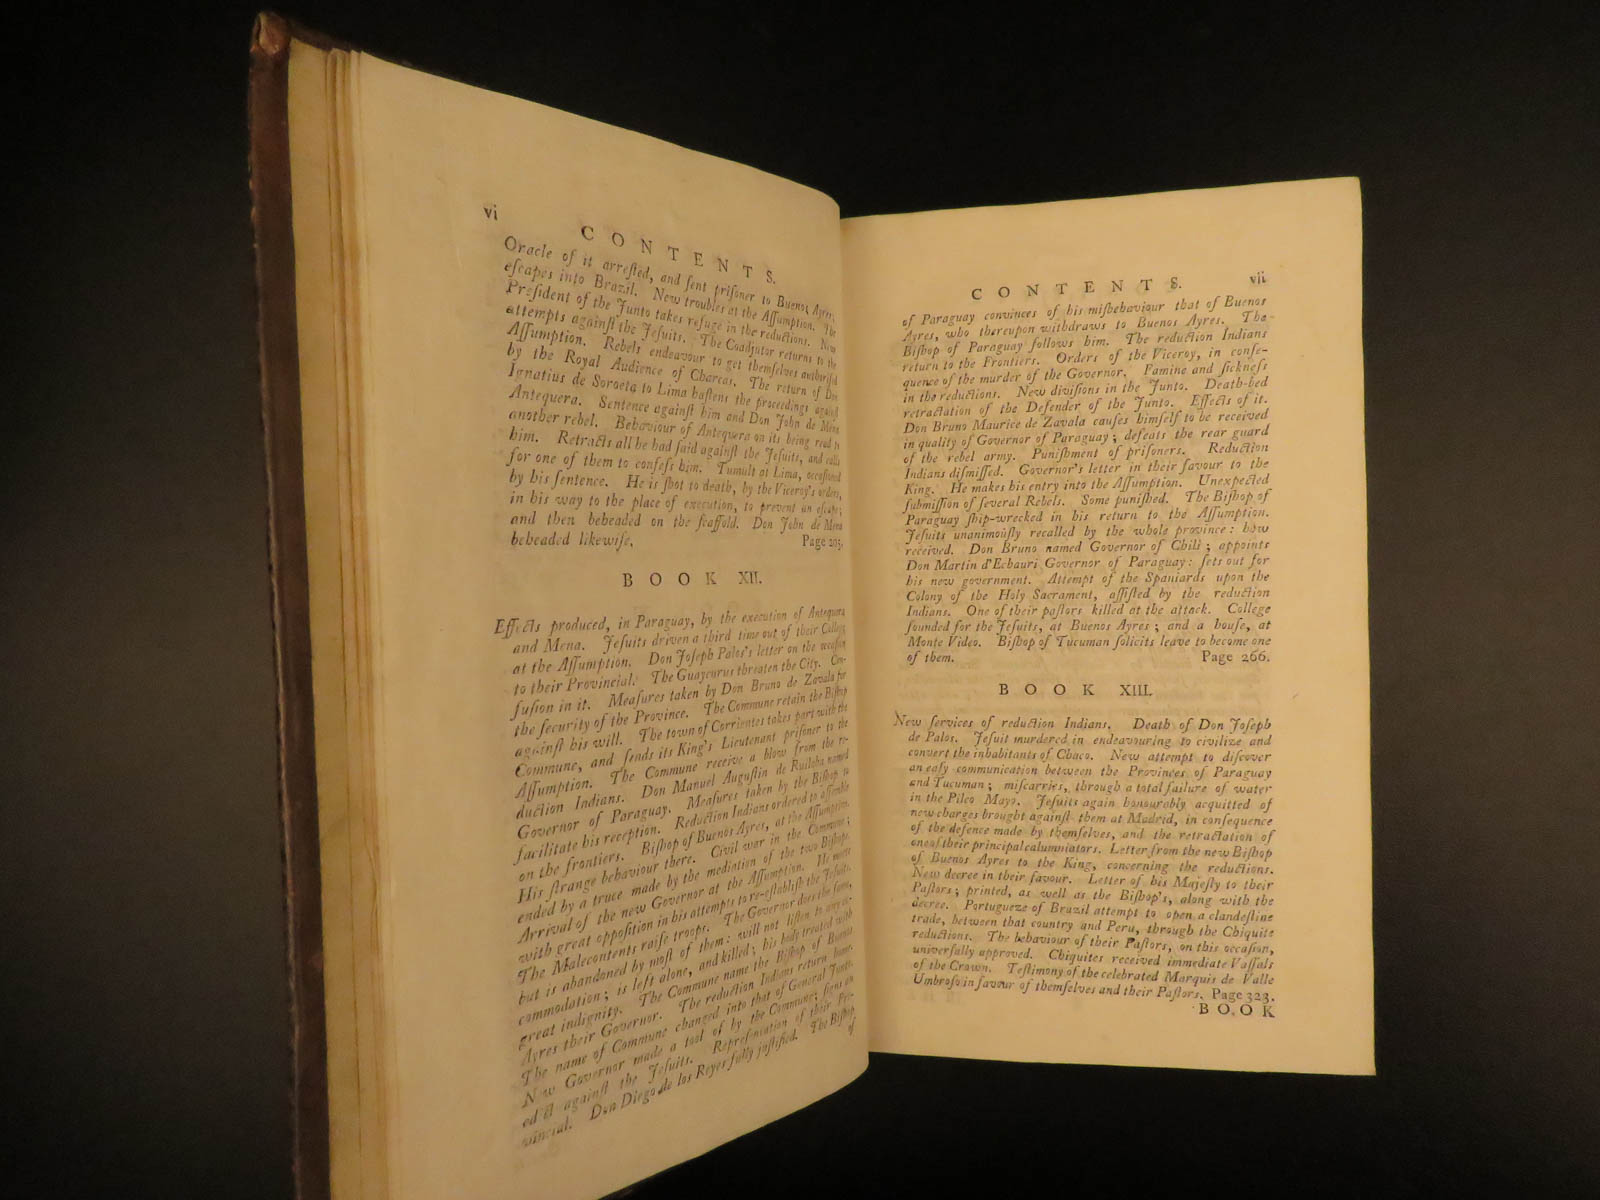 vi
CONTENTS.
Oracle of it arreſted, and ſent priſoner to Buenos Ayres,
eſcapes into Brazil. New troubles at the Aſſumption. The
Preſident of the Junto takes refuge in the reductions. New
attempts againſt the Jeſuits. The Coadjutor returns to the
Aſſumption. Rebels endeavour to get themſelves authoriſed
by the Royal Audience of Charcas. The return of Don
Ignatius de Soroeta to Lima haſtens the proceedings againſt
Antequera. Sentence againſt him and Don John de Mena
another rebel. Behaviour of Antequera on its being read to
him. Retracts all he had ſaid againſt the Jeſuits, and calls
for one of them to confeſs him. Tumult at Lima, occaſioned
by his ſentence. He is ſhot to death, by the Viceroy's orders,
in his way to the place of execution, to prevent an eſcape;
and then beheaded on the ſcaffold. Don John de Mena
beheaded likewiſe. Page 203.
BOOK XII.
Effects produced, in Paraguay, by the execution of Antequera
and Mena. Jeſuits driven a third time out of their College
at the Aſſumption. Don Joſeph Palos's letter on the occaſion
to their Provincial. The Guaycurus threaten the City. Con-
fuſion in it. Meaſures taken by Don Bruno de Zavala for
the ſecurity of the Province. The Commune retain the Biſhop
againſt his will. The town of Corrientes takes part with the
Commune, and ſends its King's Lieutenant priſoner to the
Aſſumption. The Commune receive a blow from the re-
duction Indians. Don Manuel Auguſtin de Ruiloba named
Governor of Paraguay. Meaſures taken by the Biſhop to
facilitate his reception. Reduction Indians ordered to aſſemble
on the frontiers. Biſhop of Buenos Ayres, at the Aſſumption.
His ſtrange behaviour there. Civil war in the Commune;
ended by a truce made by the mediation of the two Biſhops.
Arrival of the new Governor at the Aſſumption. He meets
with great oppoſition in his attempts to re-eſtabliſh the Jeſuits.
The Malecontents raiſe troops. The Governor does the ſame,
but is abandoned by moſt of them: will not liſten to any ac-
commodation; is left alone, and killed; his body treated with
great indignity. The Commune name the Biſhop of Buenos
Ayres their Governor. The reduction Indians return home.
The name of Commune changed into that of General Junto.
New Governor made a tool of by the Commune; ſigns an
edict againſt the Jeſuits. Repreſentation of their Pro-
vincial. Don Diego de los Reyes fully juſtified. The Biſhop
of
CONTENTS. vii
of Paraguay convinces of his miſbehaviour that of Buenos
Ayres, who thereupon withdraws to Buenos Ayres. The
Biſhop of Paraguay follows him. The reduction Indians
return to the Frontiers. Orders of the Viceroy, in conſe-
quence of the murder of the Governor. Famine and ſickneſs
in the reductions. New diviſions in the Junto. Death-bed
retractation of the Defender of the Junto. Effects of it.
Don Bruno Maurice de Zavala cauſes himſelf to be received
in quality of Governor of Paraguay; defeats the rear guard
of the rebel army. Puniſhment of priſoners. Reduction
Indians diſmiſſed. Governor's letter in their favour to the
King. He makes his entry into the Aſſumption. Unexpected
ſubmiſſion of ſeveral Rebels. Some puniſhed. The Biſhop of
Paraguay ſhip-wrecked in his return to the Aſſumption.
Jeſuits unanimouſly recalled by the whole province: how
received. Don Bruno named Governor of Chili; appoints
Don Martin d'Echauri Governor of Paraguay: ſets out for
his new government. Attempt of the Spaniards upon the
Colony of the Holy Sacrament, aſſiſted by the reduction
Indians. One of their paſtors killed at the attack. College
founded for the Jeſuits, at Buenos Ayres; and a houſe, at
Monte Video. Biſhop of Tucuman ſolicits leave to become one
of them. Page 266.
BOOK XIII.
New ſervices of reduction Indians. Death of Don Joſeph
de Palos. Jeſuit murdered in endeavouring to civilize and
convert the inhabitants of Chaco. New attempt to diſcover
an eaſy communication between the Provinces of Paraguay
and Tucuman; miſcarries, through a total failure of water
in the Pilco Mayo. Jeſuits again honourably acquitted of
new charges brought againſt them at Madrid, in conſequence
of the defence made by themſelves, and the retractation of
one of their principal calumniators. Letter from the new Biſhop
of Buenos Ayres to the King, concerning the reductions.
New decree in their favour. Letter of his Majeſty to their
Paſtors; printed, as well as the Biſhop's, along with the
decree. Portugueze of Brazil attempt to open a clandeſtine
trade, between that country and Peru, through the Chiquite
reductions. The behaviour of their Paſtors, on this occaſion,
univerſally approved. Chiquites received immediate Vaſſals
of the Crown. Teſtimony of the celebrated Marquis de Valle
Umbroſo in favour of themſelves and their Paſtors. Page 323.
BOOK